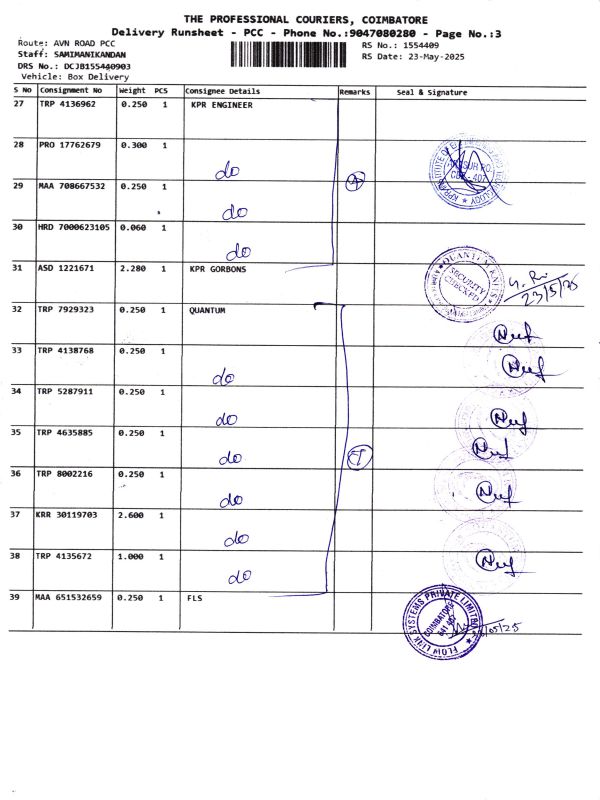 THE PROFESSIONAL COURIERS, COIMBATORE
Delivery Runsheet - PCC - Phone No.:9047080280 - Page No.:3
Route: AVN ROAD PCC
RS No.: 1554409
Staff: SAMIMANIKANDAN
RS Date: 23-May-2025
DRS No.: DCJB155440903
Vehicle: Box Delivery
S No Consignment No Weight PCS Consignee Details Remarks Seal & Signature
27 TRP 4136962 0.250 1 KPR ENGINEER
28 PRO 17762679 0.300 1
do
29 MAA 708667532 0.250 1
do
30 HRD 7000623105 0.060 1
do
31 ASD 1221671 2.280 1 KPR GORBONS
SECURITY
CHECKED
23/5/25
32 TRP 7929323 0.250 1 QUANTUM
33 TRP 4138768 0.250 1
do
34 TRP 5287911 0.250 1
do
35 TRP 4635885 0.250 1
do
36 TRP 8002216 0.250 1
do
37 KRR 30119703 2.600 1
do
38 TRP 4135672 1.000 1
do
39 MAA 651532659 0.250 1 FLS
FLOW LINK SYSTEMS PRIVATE LIMITED
COIMBATORE